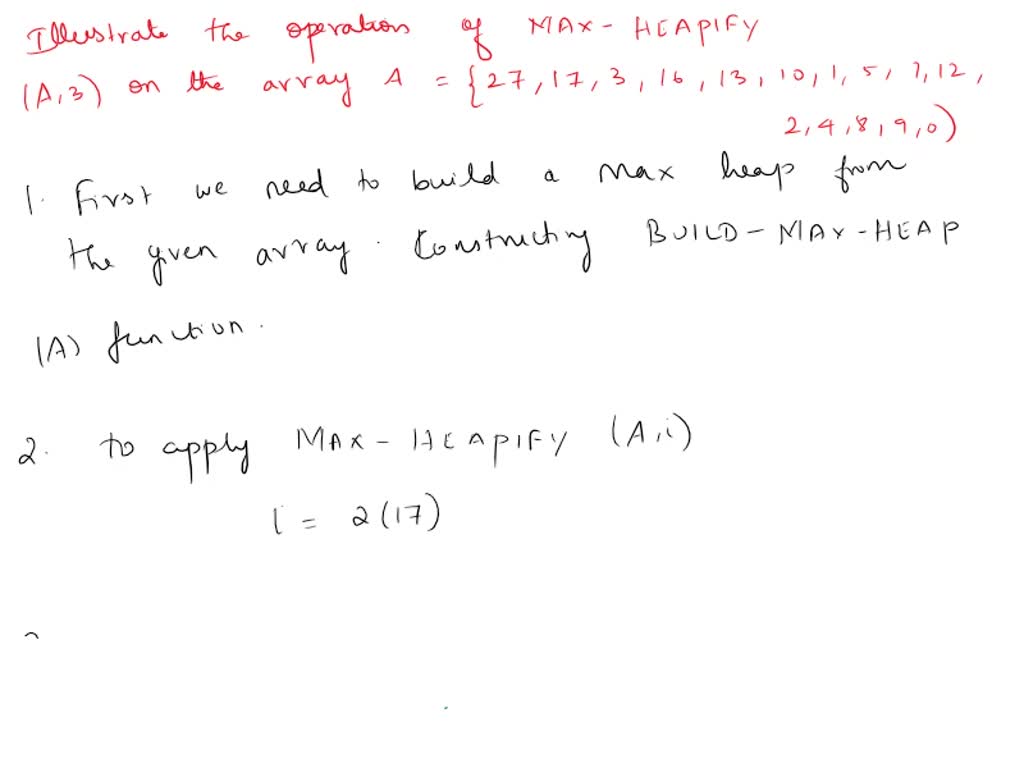 Illustrate the operation of MAX-HEAPIFY
(A,3) on the array A = {27, 17, 3, 16, 13, 10, 1, 5, 7, 12,
2, 4, 8, 9, 0)
1. First we need to build a max heap from
the given array. Constructing BUILD-MAX-HEAP
(A) function.
2. to apply MAX-HEAPIFY (A,i)
i = 2(17)